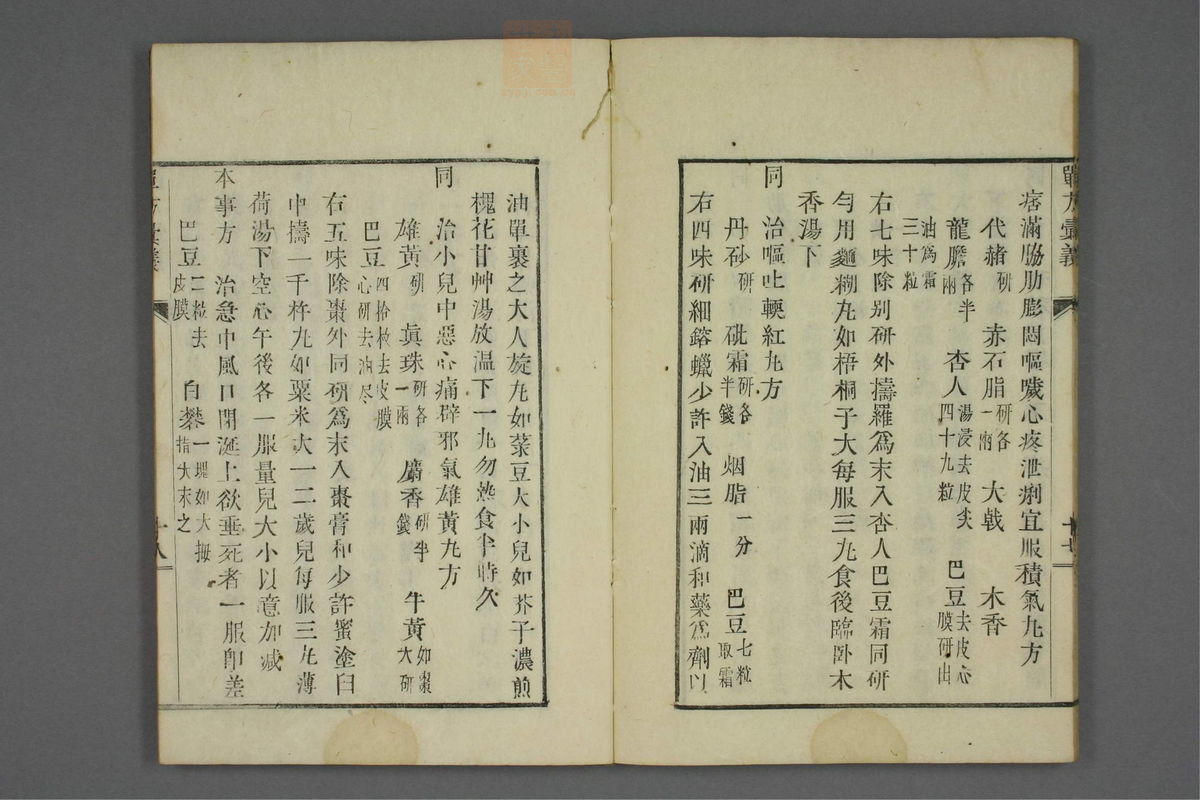 痞滿脇肋膨悶嘔噦心疼泄痢宜服積氣丸方
代赭研 赤石脂研各一兩 大戟 木香
龍膽各半兩 杏人湯浸去皮尖四十九粒 巴豆去皮心膜研出
油爲霜三十粒
右七味除别研外擣羅爲末入杏人巴豆霜同研
勻用麵糊丸如梧桐子大每服三丸食後臨卧木
香湯下
同 治嘔吐輭紅丸方
丹砂研 砒霜研各半錢 烟脂一分 巴豆七粒取霜
右四味研細鎔蠟少許入油三兩滴和藥爲劑以
單方彙義
十七
油單裹之大人旋丸如菉豆大小兒如芥子濃煎
槐花甘艸湯放温下一丸勿熱食半時久
同 治小兒中惡心痛辟邪氣雄黃丸方
雄黃研 眞珠研各一兩 麝香研半錢 牛黃如棗大研
巴豆四拾枚去皮膜心研去油尽
右五味除棗外同研爲末入棗膏和少許蜜塗臼
中擣一千杵丸如粟米大一二歲兒每服三丸薄
荷湯下空心午後各一服量兒大小以意加减
本事方 治急中風口閉涎上欲垂死者一服卽差
巴豆二粒去皮膜 白礬一塊如大拇指大末之
十八